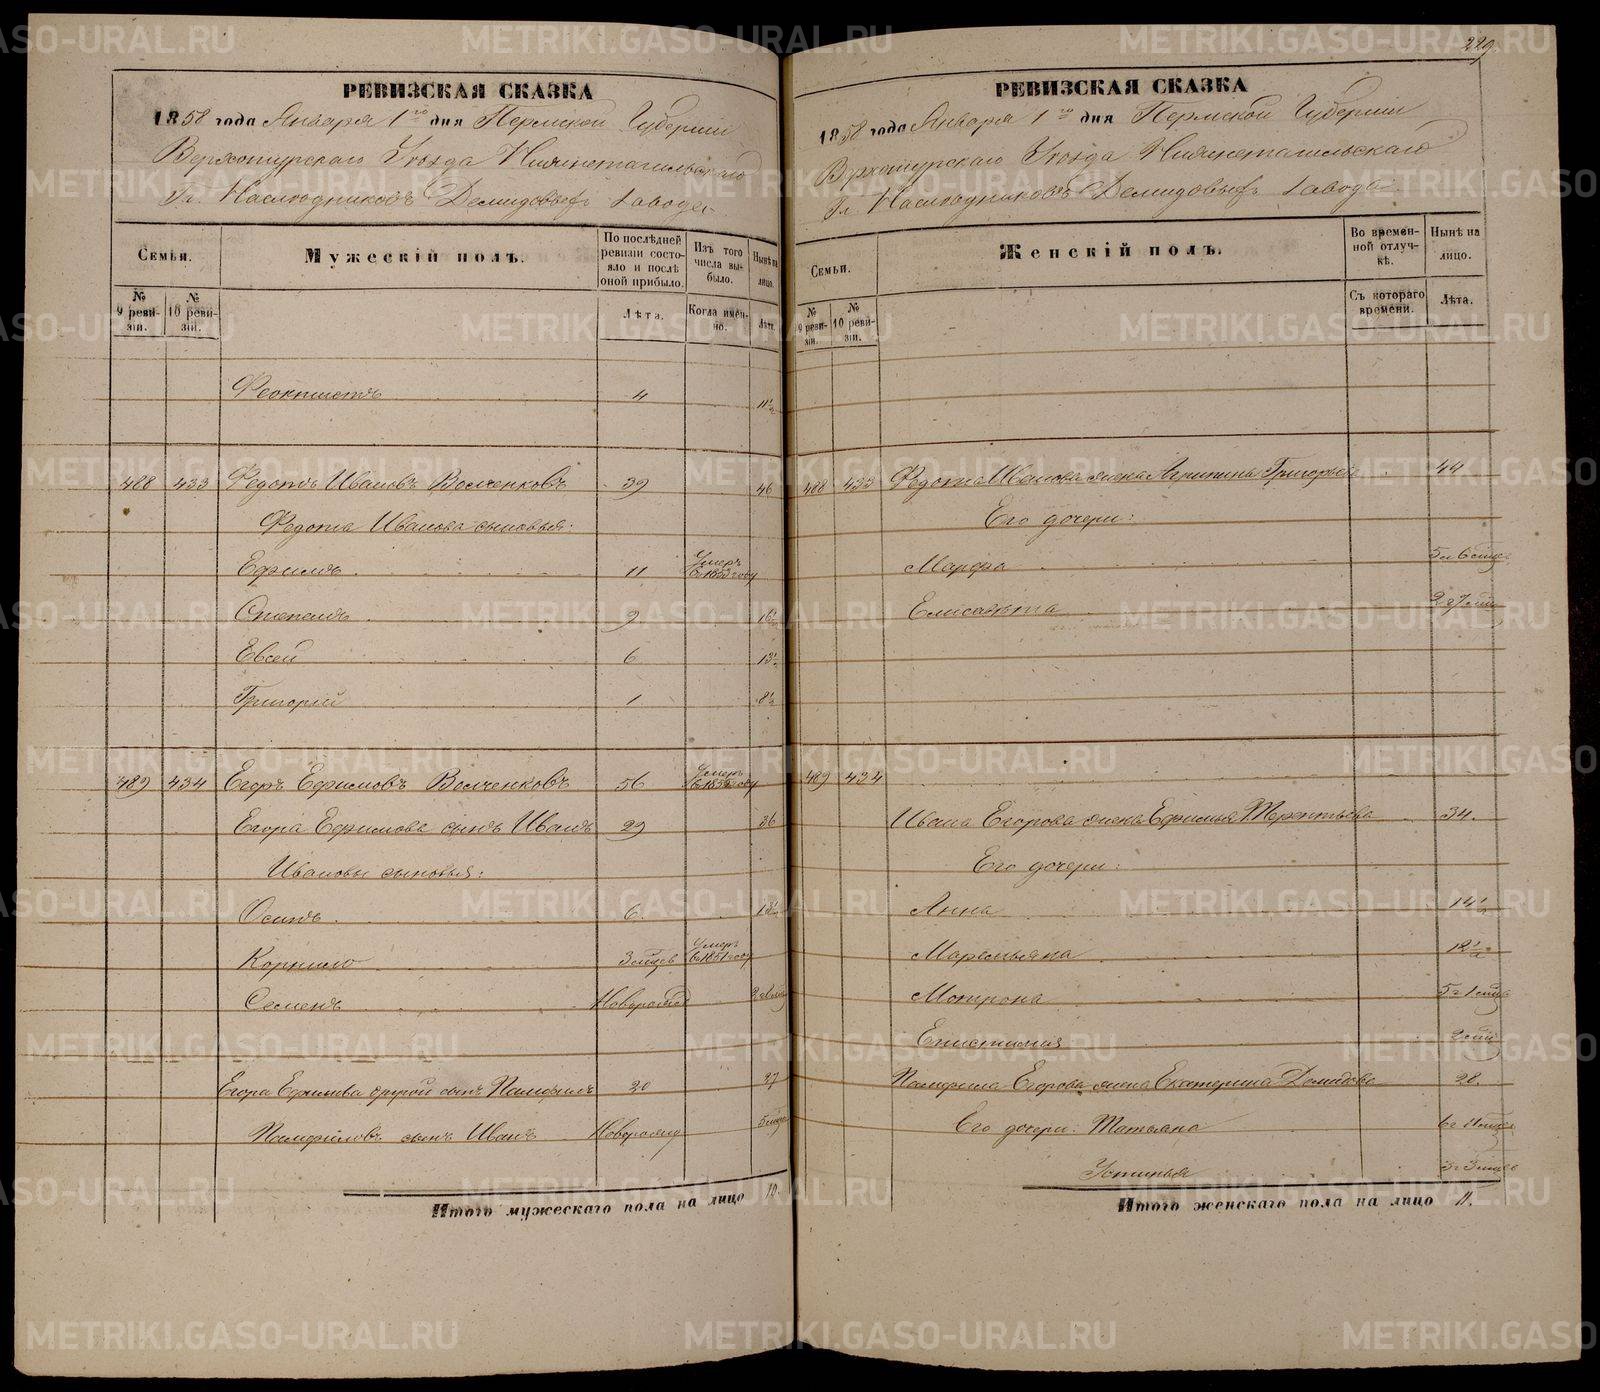 229.
РЕВИЗСКАЯ СКАЗКА
1858 года Января 1го дня Пермской Губернии
Верхотурскаго Уѣзда Нижнетагильскаго
Гг. Наслѣдниковъ Демидовыхъ завода
Семьи.
№ 9 ревизіи.
№ 10 ревизіи.
Мужескій полъ.
По послѣдней ревизіи состояло и послѣ оной прибыло.
Лѣта.
Изъ того числа выбыло.
Когда именно.
Нынѣ на лицо.
Лѣта.
Феоктистъ 4 11½
488 433 Федотъ Ивановъ Волченковъ 39 46
Федота Иванова сыновья:
Ефимъ 11 Умеръ въ 1853 году
Степанъ 9 16½
Евсей 6 13½
Григорій 1 8½
489 434 Егоръ Ефимовъ Волченковъ 56 Умеръ въ году
Егора Ефимова сынъ Иванъ 29 36
Ивановы сыновья:
Осипъ 6 13½
Корнило 3 мѣсцов Умеръ въ 1851 году
Семенъ Новорожд
Егора Ефимова другой сынъ Памфилъ 20 27
Памфиловъ сынъ Иванъ Новорожд 5 мѣсц
Итого мужескаго пола на лицо 10.
РЕВИЗСКАЯ СКАЗКА
1858 года Января 1го дня Пермской Губерніи
Верхотурскаго Уѣзда Нижнетагильскаго
Гг. Наслѣдниковъ Демидовыхъ завода
Семьи.
№ 9 ревизіи.
№ 10 ревизіи.
Женскій полъ.
Во временной отлучкѣ.
Съ котораго времени.
Нынѣ на лицо.
Лѣта.
488 433 Федота Иванова жена Агрипина Григорьева 44
Его дочери:
Марфа 5 л 6 мѣсц
Елисавѣта 2 г 7 мѣс
489 434
Ивана Егорова жена Ефимья Терентьева 34.
Его дочери:
Анна 14½
Маремьяна 12½
Мотрона 5 г 1 мѣсц
Епистимия 2 мѣс
Памфила Егорова жена Екатерина Демидова 28.
Его дочери: Татьяна 6 г 11 мѣсц
Устинья 3 г 3 мѣсцов
Итого женскаго пола на лицо 11.
METRIKI.GASO-URAL.RU